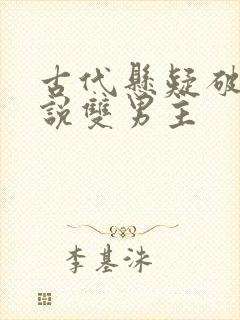 古代懸疑破
說雙男主
李基洙